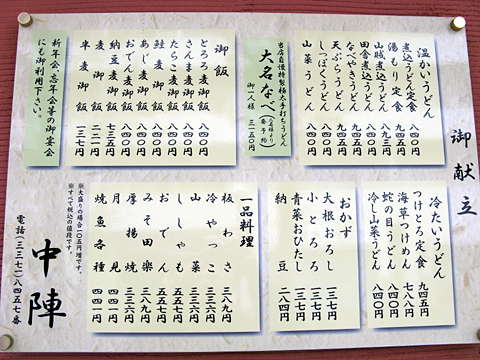 御献立
温かいうどん
煮込うどん定食 八四〇円
湯もり定食 八四〇円
山賊煮込うどん 九四五円
田舎煮込うどん 八四〇円
なべやきうどん 九四五円
天ぷらうどん 九四五円
しっぽくうどん 八四〇円
山菜うどん 八四〇円
当店自慢特製極太手打ちうどん
大名なべ
御一人様 三一五〇円
御飯
とろろ麦御飯 八四〇円
さんま麦御飯 八四〇円
たらこ麦御飯 八四〇円
鮭麦御飯 八四〇円
あじ麦御飯 八四〇円
おでん麦御飯 八四〇円
納豆麦御飯 七三五円
麦御飯 二一〇円
半麦御飯 一三七円
新年会、忘年会等の御宴会
にも御利用下さい。
冷たいうどん
つけとろ定食 九四五円
海草つけめん 七八八円
蛇の目うどん 八四〇円
冷し山菜うどん 八四〇円
おかず
大根おろし 一三七円
小とろろ 一三七円
青菜おひたし 一三七円
納豆 二八四円
一品料理
板わさ 三八九円
冷やっこ 三三六円
山菜 三三六円
ししゃも 三三六円
おでん 三三六円
みそ田楽 三八九円
厚揚焼 三三六円
月見 四四一円
焼魚各種 四四一円
※大盛りの場合一〇五円増です。
※すべて税込の値段です。
中陣
電話(三三七一)八四五七番